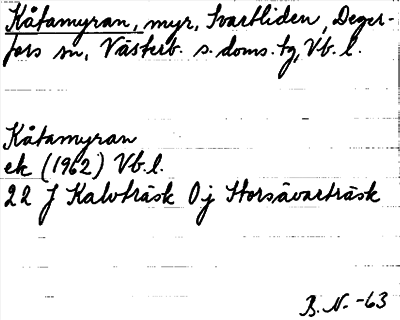 Kåtamyran, myr, Svartliden, Deger-
fors sn, Västerb. s. doms. tg, Vb. l.
Kåtamyran
ek (1962) Vb. l.
22 J Kalvträsk Oj Storsävarträsk
B. N. -63